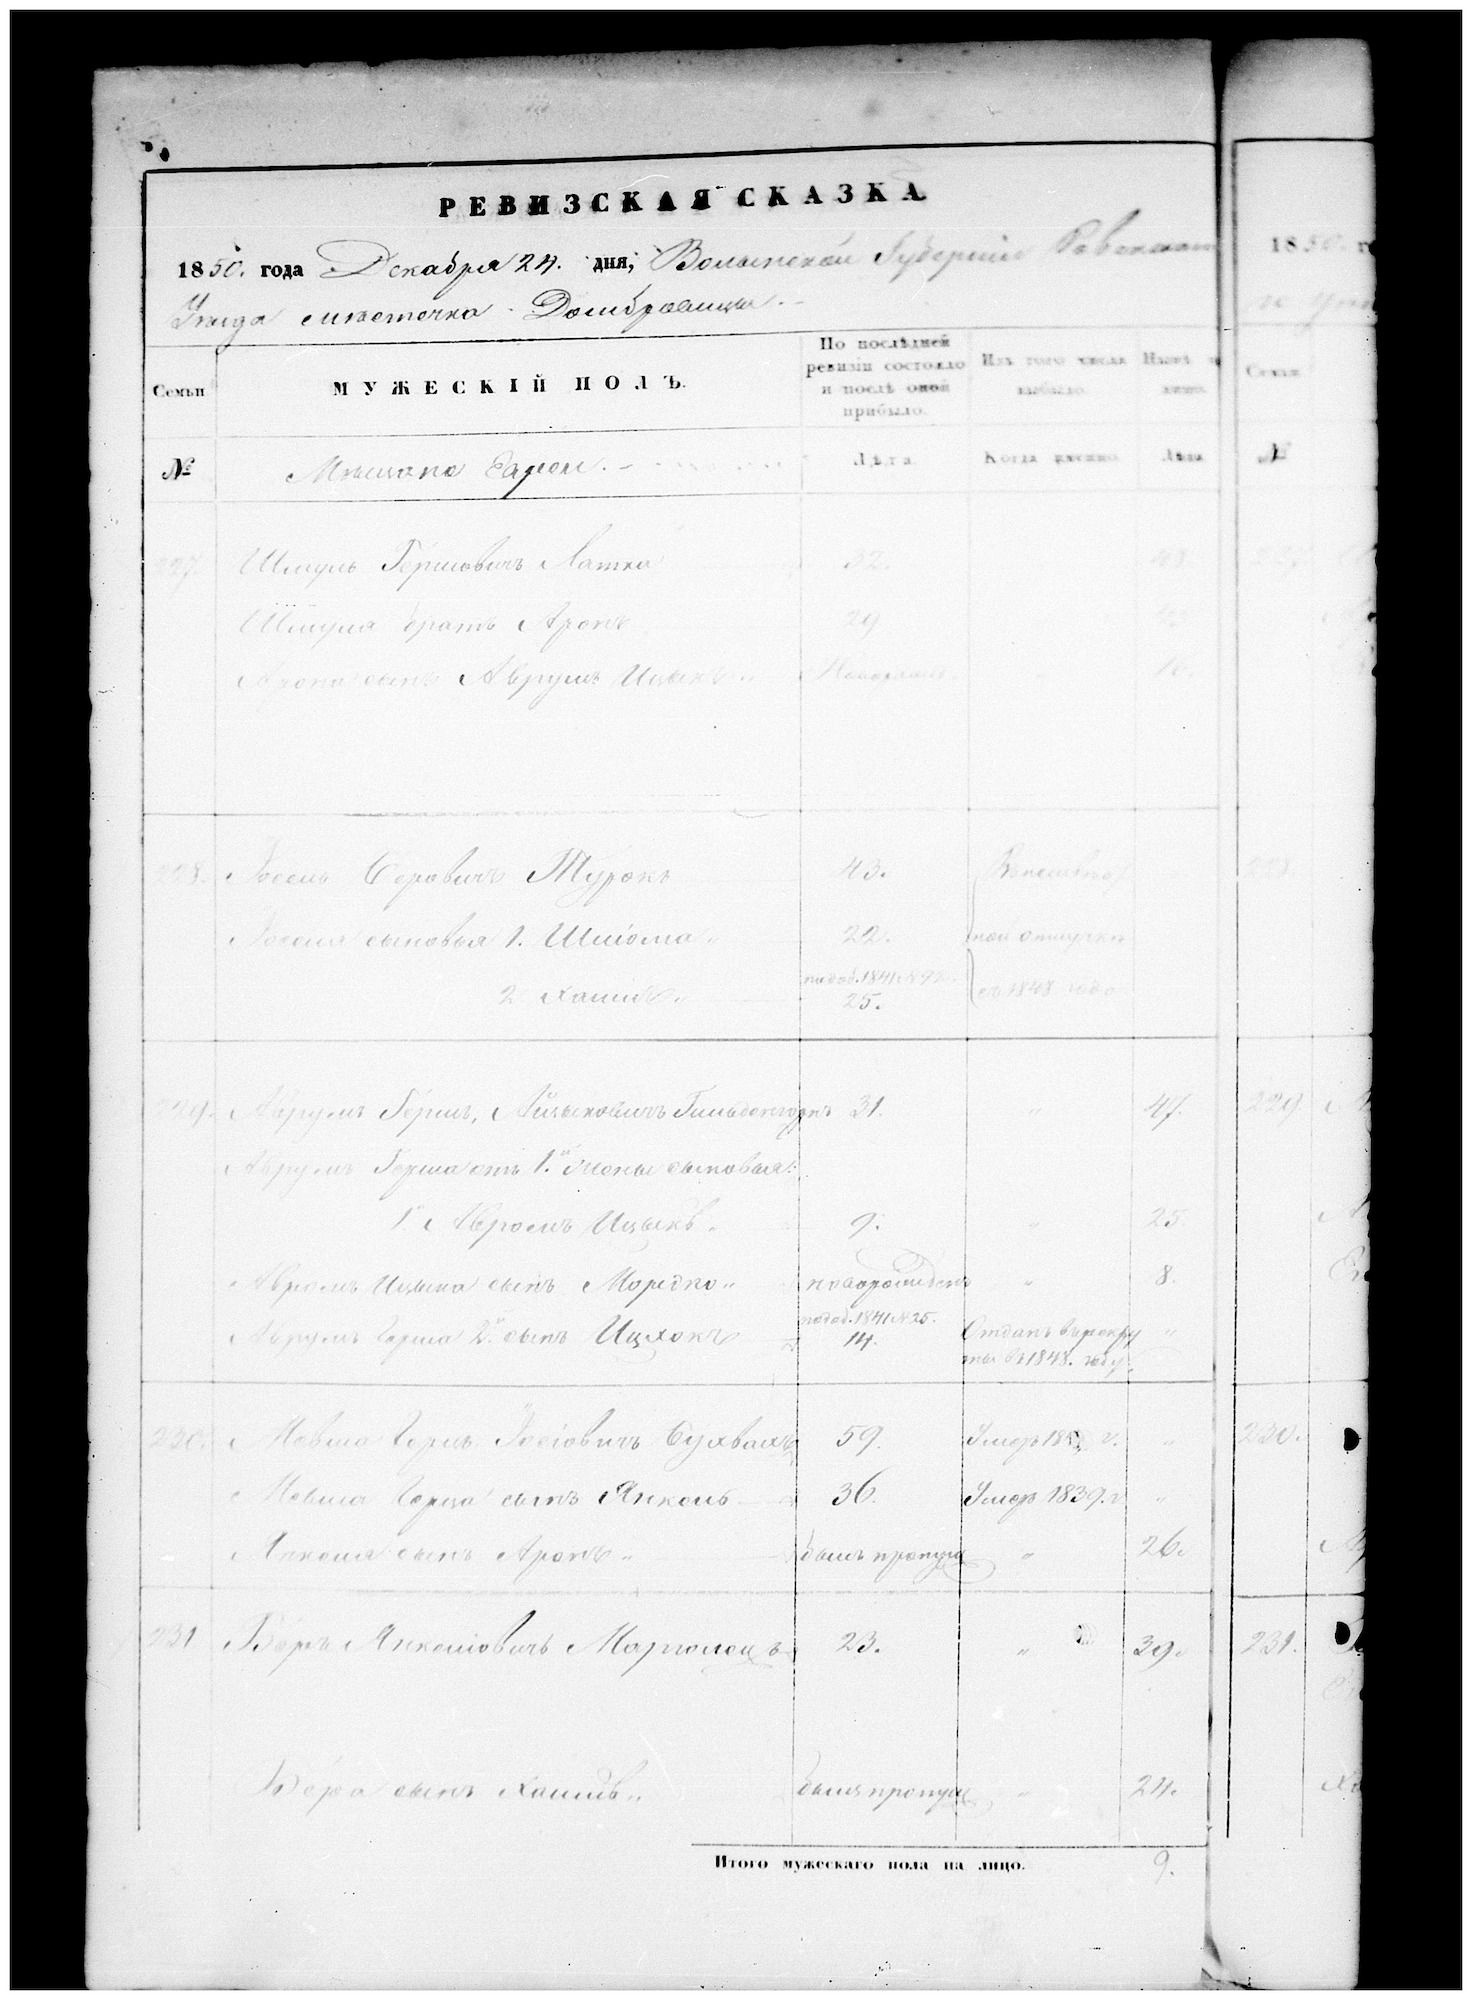 РЕВИЗСКАЯ СКАЗКА
1850. года Декабря 24. дня, Волынской Губернии Ровенскаго
Уѣзда мѣстечка Домбровицы
Семьи
МУЖЕСКІЙ ПОЛЪ.
По послѣдней ревизіи состояло и послѣ оной прибыло.
Изъ того числа выбыло.
Нынѣ на лицо.
№
Мѣщане Евреи.
Лѣта.
Когда именно.
Лѣта.
227. Шмуль Гершовичъ Латка 32. 48.
Шмуля братъ Аронъ 29
Арона сынъ Аврумъ Ицыкъ „ Новорожд. „ 16.
228. Іосель Серовичъ Турокъ 43.
Іоселя сыновья 1. Шліома „ 22. ной отлучкѣ
2. Хаимъ „ 25. съ 1848 года
229. Аврумъ Гершъ, Айзыковичъ 31. „ 47.
Аврумъ Герша отъ 1й жены сыновья:
1й Авромъ Ицыкъ „ 9. „ 25.
Авромъ Ицыка сынъ Мордко „ новорожденъ „ 8.
Аврумъ Герша 2й сынъ Ицхокъ подоб. 1841 №25. 14. Отданъ въ рекру „
ты въ 1848. году.
230. Мовша Герцъ Іосіовичъ 59. Умеръ „
Мовша Герца сынъ Янкель 36. Умеръ 1839. г. „
Янкеля сынъ Аронъ „ былъ пропущ „ 26.
231 Беръ Янкеліовичъ 23. „ 39.
Бера сынъ Хаимъ „ былъ пропущ „ 24.
Итого мужескаго пола на лицо. 9.
1850. го
Семьи
№
227.
228.
229.
230.
231.